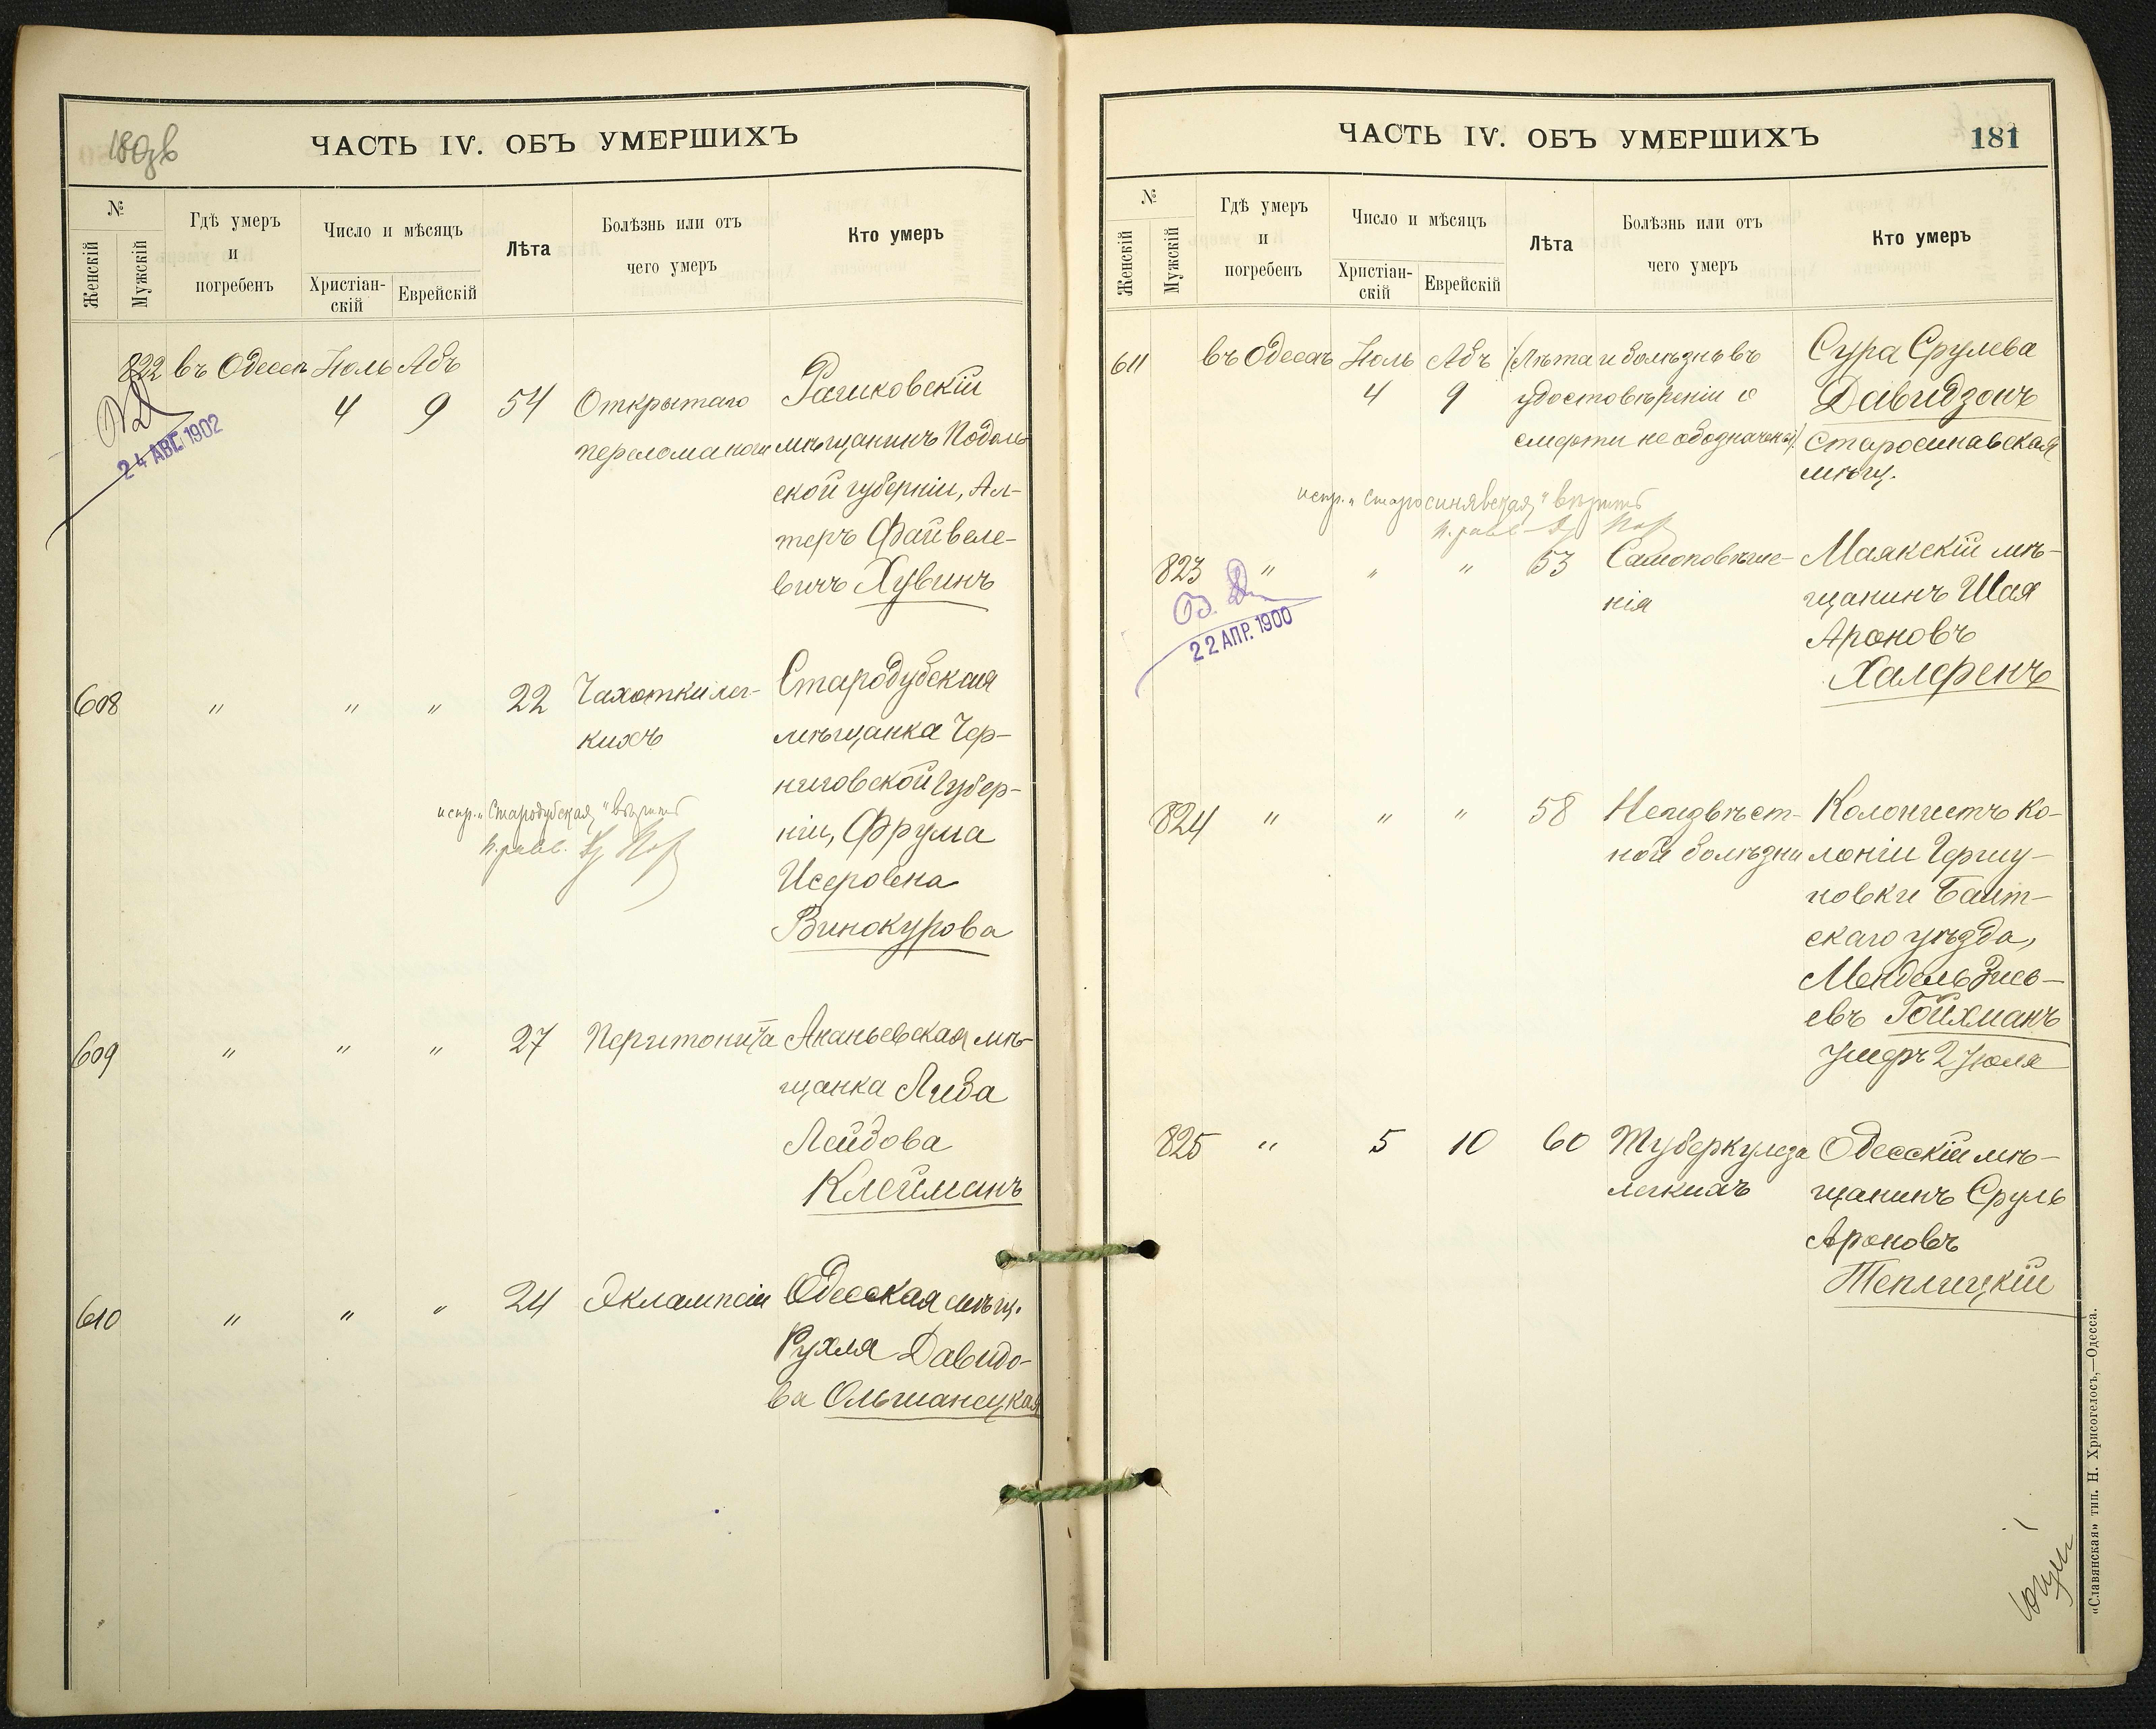 180об
ЧАСТЬ IV. ОБЪ УМЕРШИХЪ
№
Женскій
Мужскій
Гдѣ умеръ
и
погребенъ
Число и мѣсяцъ
Христіан-
скій
Еврейскій
Лѣта
Болѣзнь или отъ
чего умеръ
Кто умеръ
822 въ Одессѣ Іюль Абъ
4 9 54 Открытаго
перелома ноги
Рашковскій
мѣщанинъ Подоль
ской губерніи, Ал-
теръ Файвеле-
вичъ Хувинъ
24 АВГ. 1902
608 " " " 22 Чахотки лег-
кихъ
Стародубская
мѣщанка Чер-
ниговской Губер-
ніи, Фрума
Исеровна
Винокурова
испр. „Стародубская" вѣрить
609 " " " 27 Перитонита
Ананьевская мѣ-
щанка Либа
Лейбова
Клейманъ
610 " " " 24 Эклампсіи
Одесская мѣщ.
Рухля Давидо-
ва Ольшанецкая
ЧАСТЬ IV. ОБЪ УМЕРШИХЪ
181
№
Женскій
Мужскій
Гдѣ умеръ
и
погребенъ
Число и мѣсяцъ
Христіан-
скій
Еврейскій
Лѣта
Болѣзнь или отъ
чего умеръ
Кто умеръ
611 въ Одессѣ Іюль Абъ
4 9
(Лѣта и болѣзнь въ
удостовѣреніи о
смерти не обозначены)
Сура Срулева
Давидзонъ
Старосинавская
мѣщ.
испр. „Старосинявская" вѣрить
823 " " " 53 Самоповѣше-
нія
Маякскій мѣ-
щанинъ Шая
Ароновъ
Халфенъ
22 АПР. 1900
824 " " " 58 Неизвѣст-
ной болѣзни
Колонистъ ко-
лоніи Гершу-
новки Балт-
скаго уѣзда,
Мендель Зись-
евъ Гойхманъ
умеръ 2 Іюля
825 " 5 10 60 Туберкулеза
легкихъ
Одесскій мѣ-
щанинъ Сруль
Ароновъ
Теплицкій
«Славянская» тип. Н. Хрисогелосъ,—Одесса.